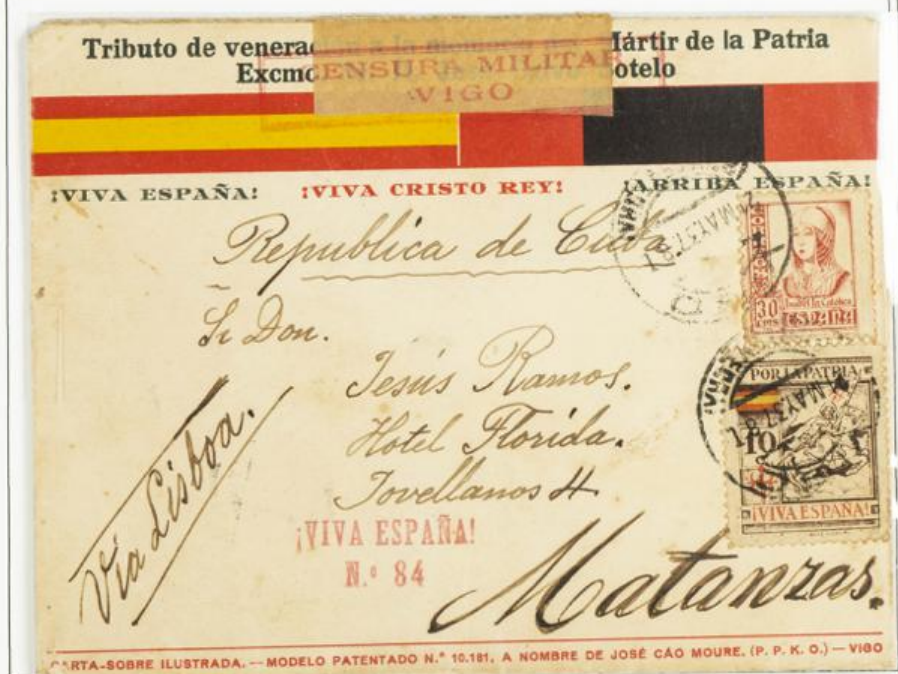 Tributo de venera a la memoria del Mártir de la Patria
Excmo otelo
CENSURA MILITAR
VIGO
¡VIVA ESPAÑA! ¡VIVA CRISTO REY! ¡ARRIBA ESPAÑA!
Republica de Cuba
Sr Don.
Jesús Ramos.
Hotel Florida.
Jovellanos 4
Matanzas.
Via Lisboa.
¡VIVA ESPAÑA!
N.º 84
MAY.37
30
CTS
Isabel la Católica
ESPAÑA
POR LA PATRIA
MAY.37
10
¡VIVA ESPAÑA!
CARTA-SOBRE ILUSTRADA.—MODELO PATENTADO N.º 10.181, A NOMBRE DE JOSÉ CÁO MOURE. (P. P. K. O.) — VIGO